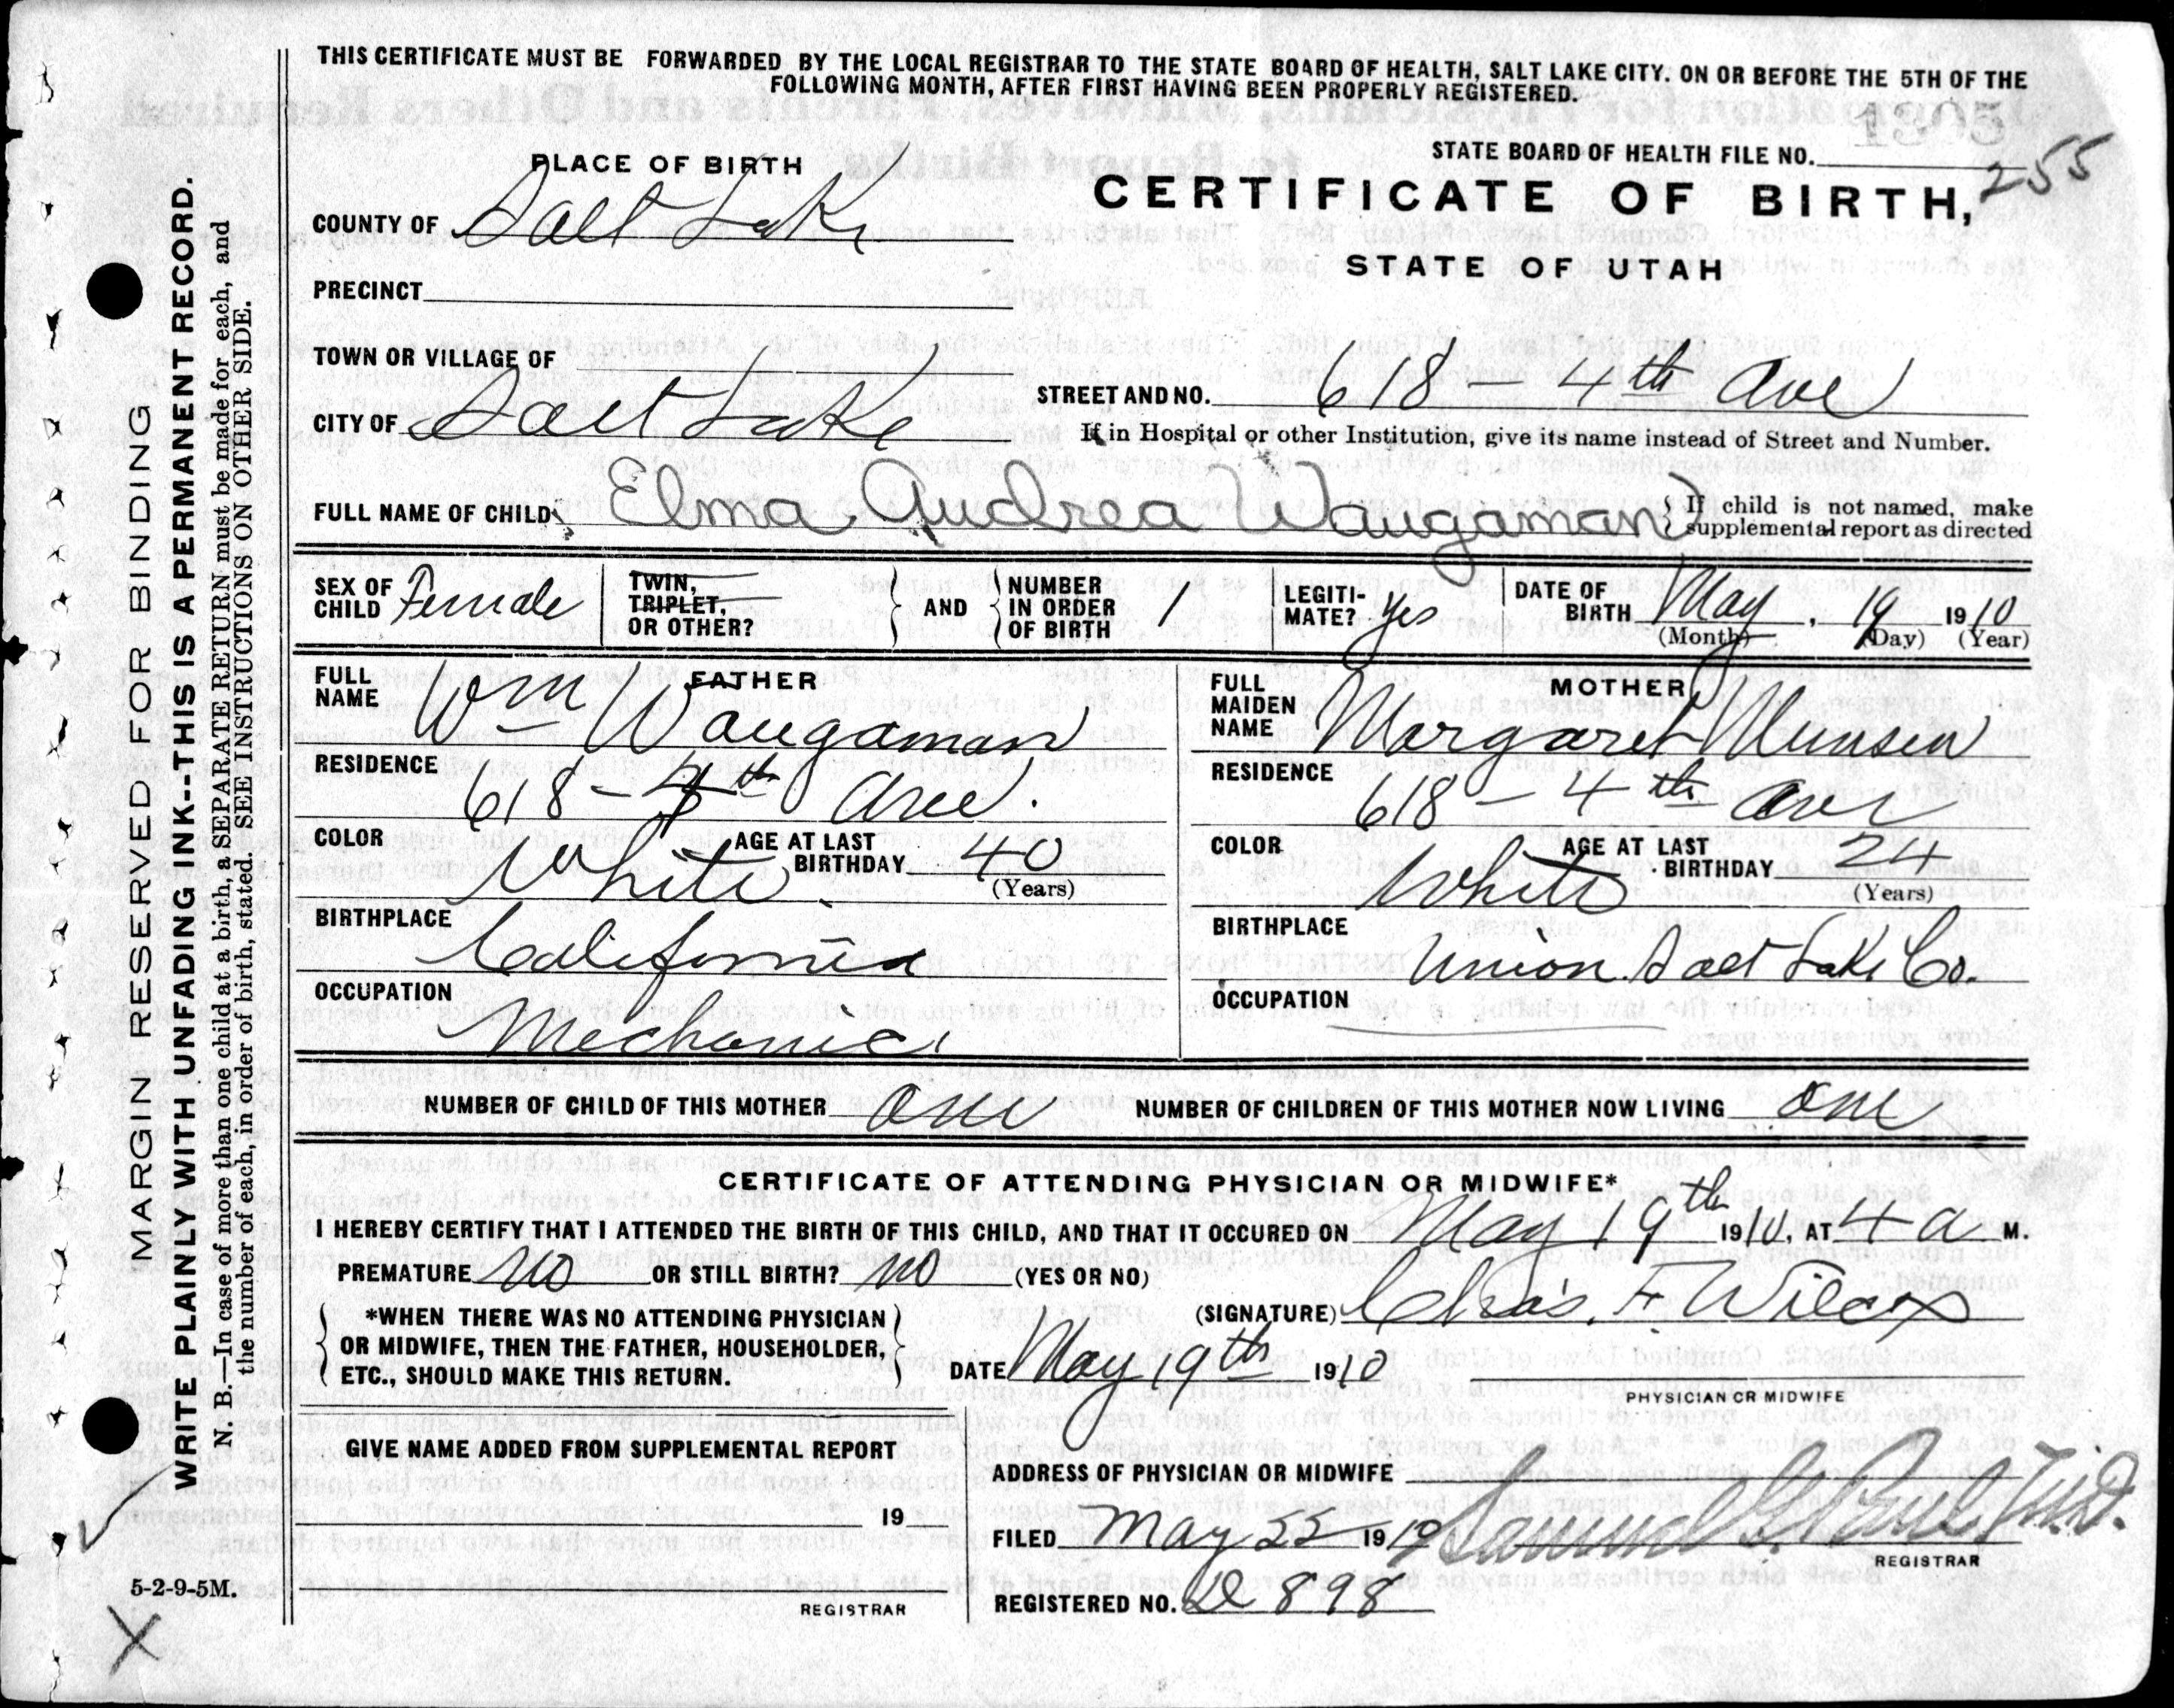 THIS CERTIFICATE MUST BE FORWARDED BY THE LOCAL REGISTRAR TO THE STATE BOARD OF HEALTH, SALT LAKE CITY. ON OR BEFORE THE 5TH OF THE
FOLLOWING MONTH, AFTER FIRST HAVING BEEN PROPERLY REGISTERED.
PLACE OF BIRTH
STATE BOARD OF HEALTH FILE NO. 255
CERTIFICATE OF BIRTH,
STATE OF UTAH
COUNTY OF Salt Lake
PRECINCT
TOWN OR VILLAGE OF
CITY OF Salt Lake
STREET AND NO. 618 - 4th Ave
If in Hospital or other Institution, give its name instead of Street and Number.
FULL NAME OF CHILD Elma Audrea Waugaman
If child is not named, make
supplemental report as directed
SEX OF CHILD Female
TWIN, TRIPLET, OR OTHER?
AND
NUMBER IN ORDER OF BIRTH 1
LEGITI-MATE? Yes
DATE OF BIRTH May 19 1910
(Month) (Day) (Year)
FATHER
FULL NAME Wm Waugaman
RESIDENCE 618 - 4th Ave.
COLOR White
AGE AT LAST BIRTHDAY 40
(Years)
BIRTHPLACE California
OCCUPATION Mechanic
MOTHER
FULL MAIDEN NAME Margaret Munsen
RESIDENCE 618 - 4th Ave
COLOR White
AGE AT LAST BIRTHDAY 24
(Years)
BIRTHPLACE Union Salt Lake Co.
OCCUPATION
NUMBER OF CHILD OF THIS MOTHER one NUMBER OF CHILDREN OF THIS MOTHER NOW LIVING one
CERTIFICATE OF ATTENDING PHYSICIAN OR MIDWIFE*
I HEREBY CERTIFY THAT I ATTENDED THE BIRTH OF THIS CHILD, AND THAT IT OCCURED ON May 19th 1910, AT 4 a M.
PREMATURE No OR STILL BIRTH? No (YES OR NO)
*WHEN THERE WAS NO ATTENDING PHYSICIAN
OR MIDWIFE, THEN THE FATHER, HOUSEHOLDER,
ETC., SHOULD MAKE THIS RETURN.
(SIGNATURE) Chas. F. Wilcox
DATE May 19th 1910
PHYSICIAN OR MIDWIFE
GIVE NAME ADDED FROM SUPPLEMENTAL REPORT
19
REGISTRAR
ADDRESS OF PHYSICIAN OR MIDWIFE
FILED May 22 1910 Samuel G. Paul M.D.
REGISTRAR
REGISTERED NO. D 898
MARGIN RESERVED FOR BINDING
WRITE PLAINLY WITH UNFADING INK--THIS IS A PERMANENT RECORD.
N. B.—In case of more than one child at a birth, a SEPARATE RETURN must be made for each, and
the number of each, in order of birth, stated. SEE INSTRUCTIONS ON OTHER SIDE.
5-2-9-5M.